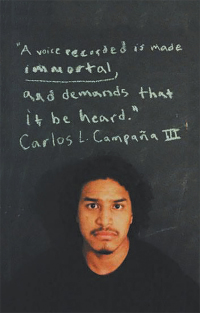 "A voice recorded is made
immortal,
and demands that
it be heard."
Carlos L. Campaña III